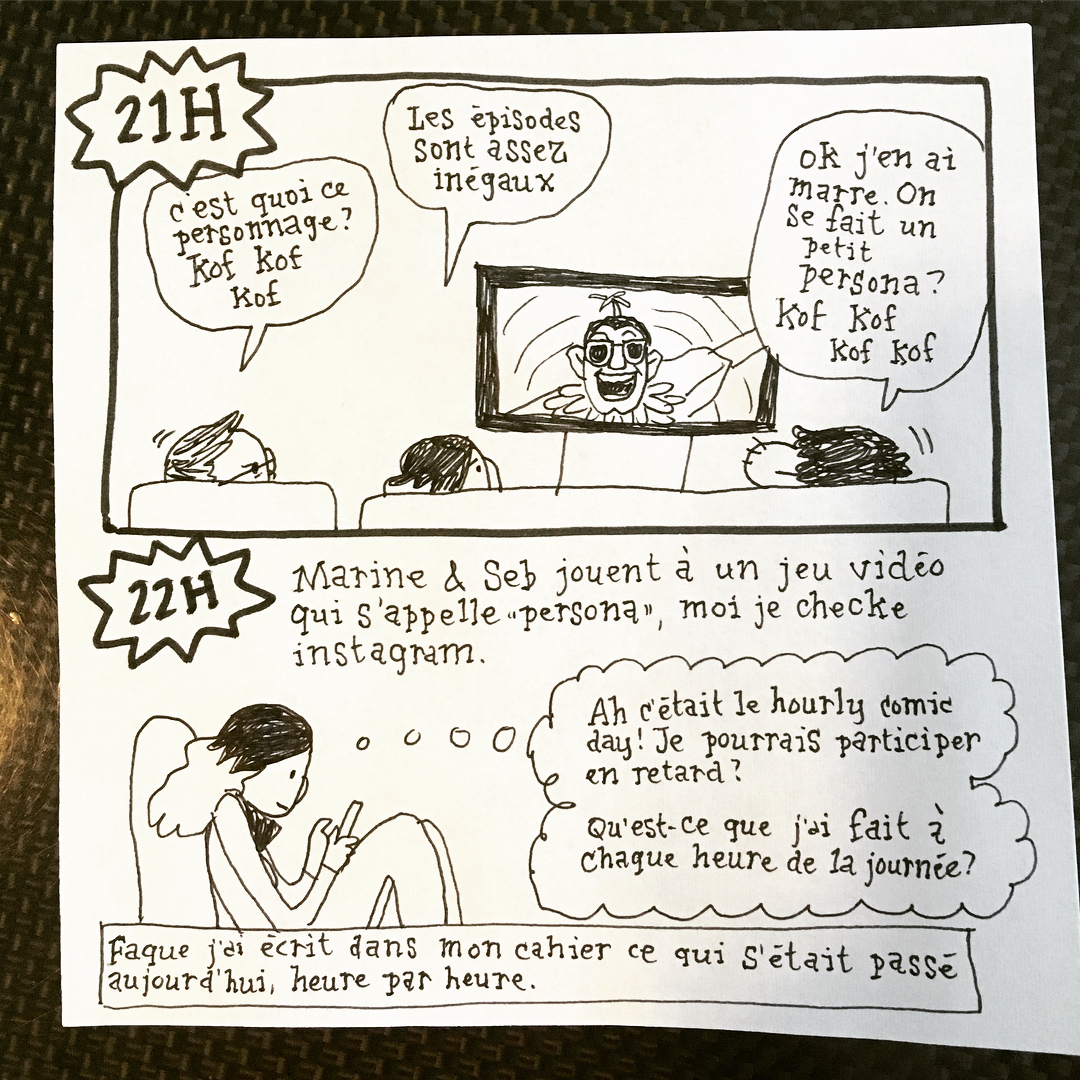 21H
c'est quoi ce
personnage?
kof kof
kof
Les épisodes
sont assez
inégaux
ok j'en ai
marre. On
se fait un
petit
persona?
kof kof
kof kof
22H
Marine & Seb jouent à un jeu vidéo
qui s'appelle «persona», moi je checke
instagram.
Ah c'était le hourly comic
day! Je pourrais participer
en retard?
Qu'est-ce que j'ai fait à
chaque heure de la journée?
Faque j'ai écrit dans mon cahier ce qui s'était passé
aujourd'hui, heure par heure.